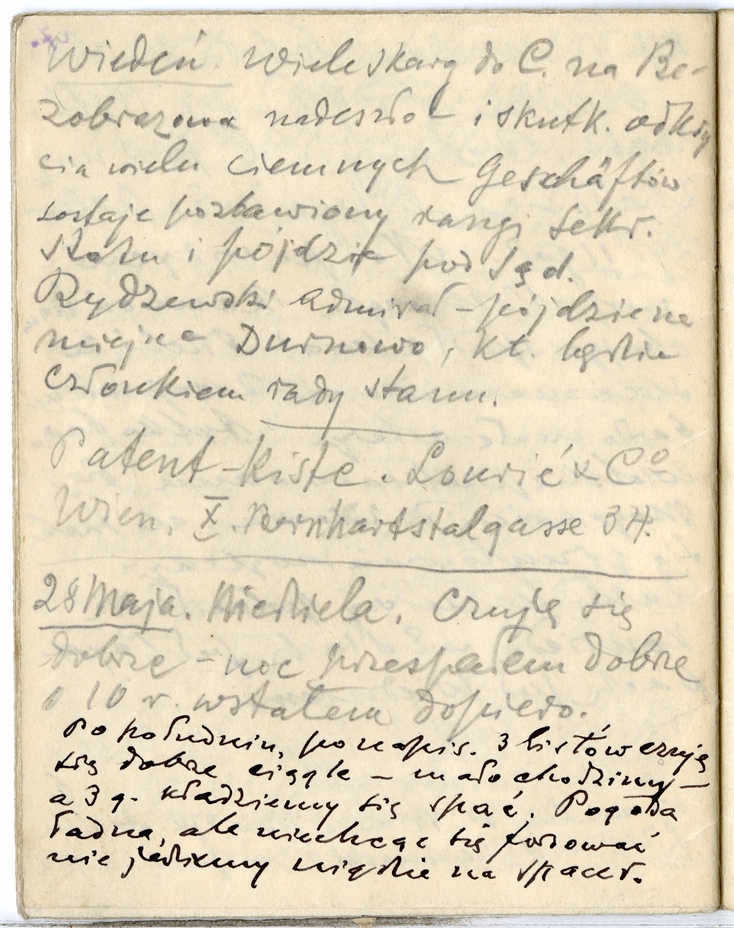 Wiedeń. Wiele skarg do C. na Be-
zobrazowa nadeszło i skutk. odkry
cia wielu ciemnych Geschäftów
zostaje pozbawiony rangi Sekr.
Stanu i pójdzie pod Sąd.
Rydzewski admirał – pójdzie na
miejsce Durnowo, kt. będzie
członkiem rady stanu.
Patent-Kiste. Lourié & Co
Wien, X. Bernhartstalgasse 34.
28 Maja. Niedziela. Czuję się
dobrze – noc przespałem dobrze
o 10 r. wstałem dopiero.
Po południu, po napis. 3 listów czuję
się dobrze ciągle – mało chodzimy –
a 3 g. kładziemy się spać. Pogoda
ładna, ale niechcąc się forsować
nie jedziemy nigdzie na spacer.